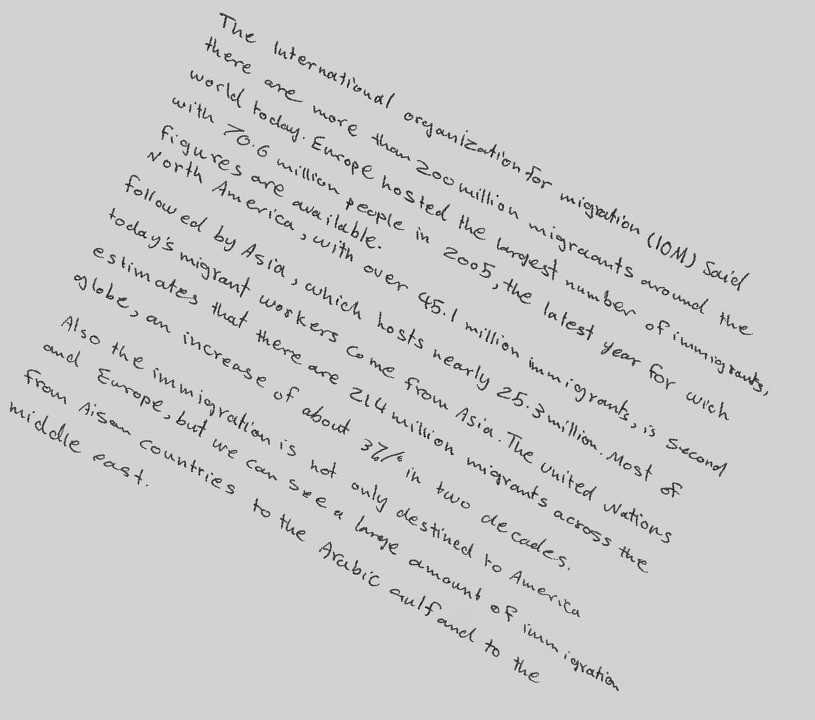 The International organization for migration (IOM) Said
there are more than 200 million migraants around the
world today. Europe hosted the largest number of immigrants,
with 70.6 million people in 2005, the latest year for wich
figures are available.
North America, with over 45.1 million immigrants, is second
followed by Asia, which hosts nearly 25.3 million. Most of
today's migrant workers come from Asia. The united Nations
estimates that there are 214 million migrants across the
globe, an increase of about 37% in two decades.
Also the immigration is not only destined to America
and Europe, but we can see a large amount of immigration
from Aisan countries to the Arabic gulf and to the
middle east.